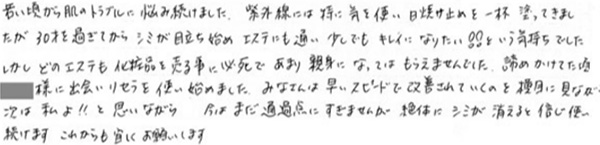 若い頃から肌のトラブルに悩み続けました。紫外線には特に気を使い日焼け止めを一杯塗ってきまし
たが30才を過ぎてからシミが目立ち始めエステにも通い少しでもキレイになりたい!!という気持ちでした
しかしどのエステも化粧品を売る事に必死であまり親身になってはもらえませんでした。諦めかけてた頃
様に出会いリセラを使い始めました。みなさんは早いスピードで改善されていくのを横目に見なが
次は私よ!!と思いながら 今はまだ通過点にすぎませんが絶体にシミが消えると信じ使い
続けます これからも宜しくお願いします